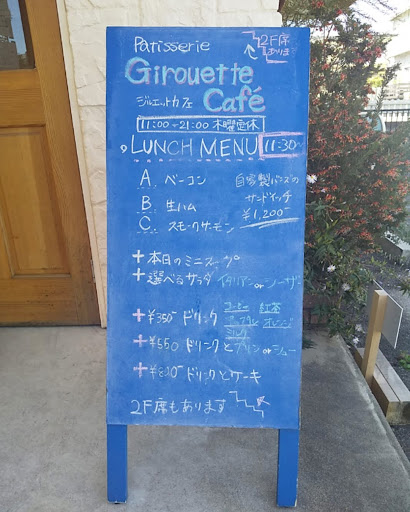 Patisserie
2F席
あります
Girouette
ジルエットカフェ
Café
11:00~21:00 木曜定休
LUNCH MENU 11:30~
A ベーコン
自家製バンズの
B 生ハム
サンドイッチ
¥1,200-
C スモークサーモン
+本日のミニスープ
+選べるサラダ イタリアン or シーザー
コーヒー 紅茶
+¥350- ドリンク
オレンジ
ミルク
+¥550 ドリンクとプリン or シュー
ドリンクとケーキ
2F席もあります